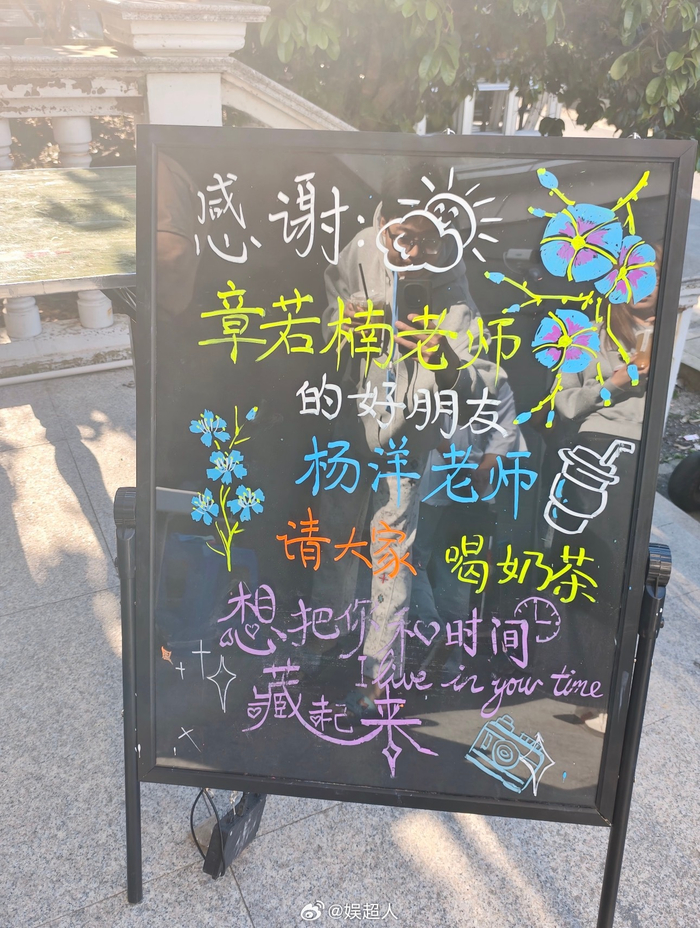 感谢:
章若楠老师
的好朋友
杨洋老师
请大家 喝奶茶
想把你和时间
I live in your time
藏起来
@娱超人